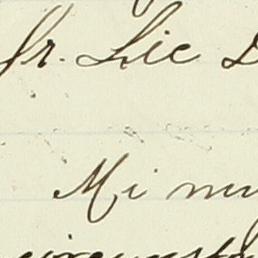 Sr. Lic D
Mi muy